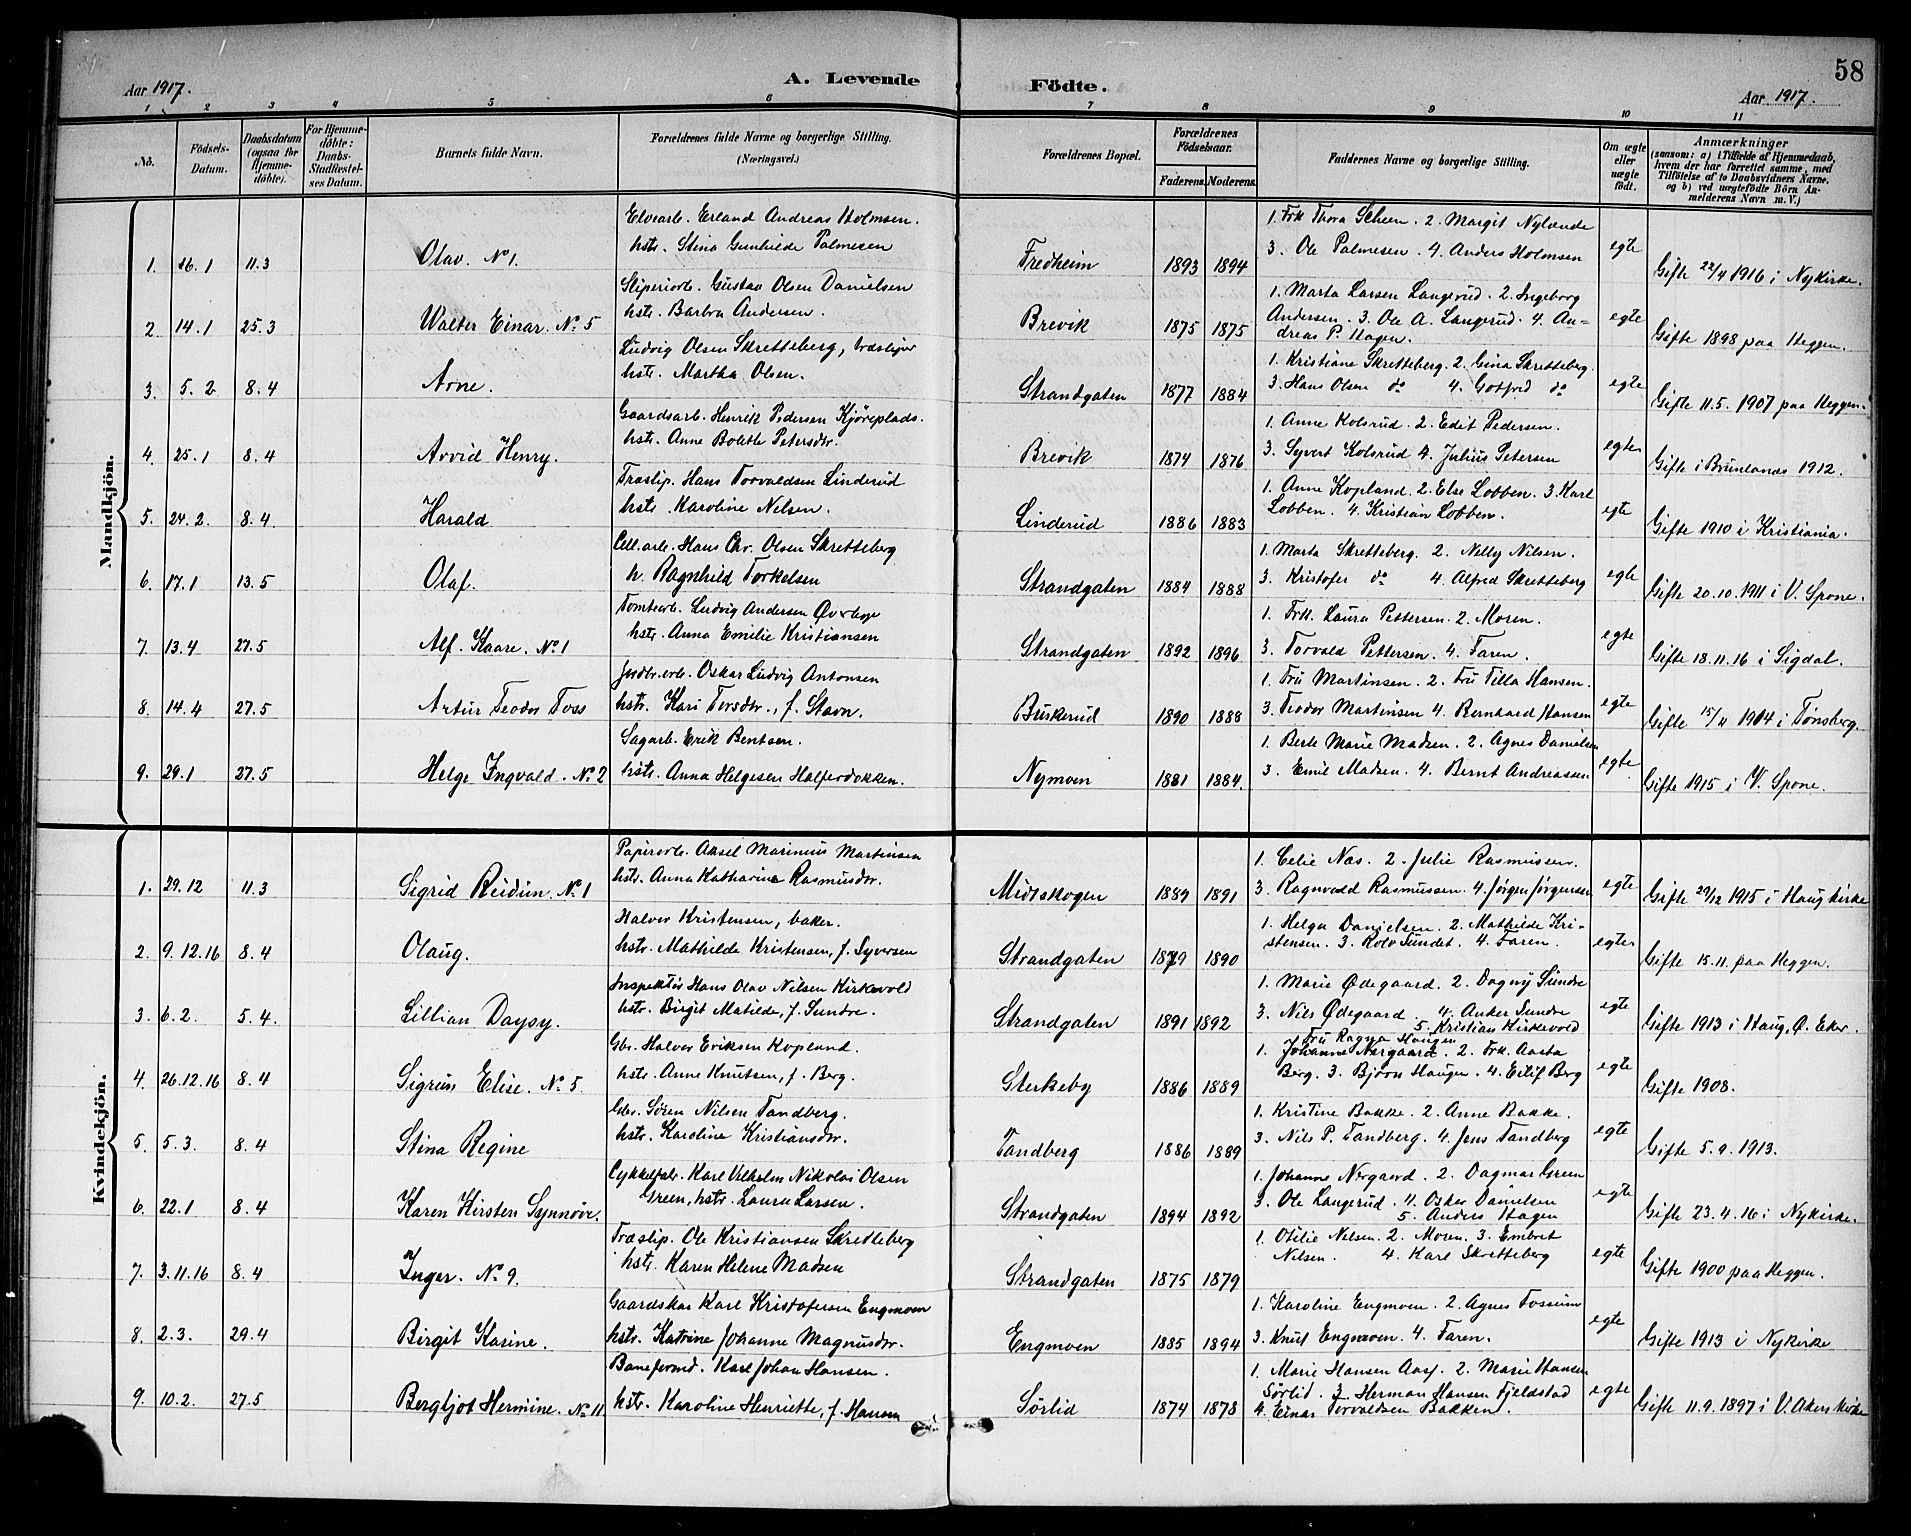 58
Aar 1917. A. Levende Födte. Aar 1917.
1 2 3 4 5 6 7 8 9 10 11
No. Födsels-Datum. Daabsdatum (ogsaa for Hjemme-döbte). For Hjemme-döbte: Daabs-Stadfæstel-ses Datum. Barnets fulde Navn. Forældrenes fulde Navne og borgerlige Stilling. (Næringsvei.) Forældrenes Bopæl. Forældrenes Födselsaar. Faderens. Moderens. Faddernes Navne og borgerlige Stilling. Om ægte eller uægte födt. Anmærkninger (saasom: a) i Tilfælde af Hjemmedaab, hvem der har forrettet samme, med Tilföielse af to Daabsvidners Navne, og b) ved uægtefödte Börn Anmelderens Navn m. V.)
Mandkjön.
Elvearb. Erland Andreas Holmsen. 1. Frk Thora Scheen. 2. Margit Nylænde
1. 16.1 11.3 Olav. No 1. hstr. Stina Gunhilde Palmesen Fredheim 1893 1894 3. Ole Palmesen. 4. Anders Holmsen egte Gifte 22/4 1916 i Nykirke.
Sliperiarb. Gustav Olsen Danielsen 1. Marta Larsen Langerud. 2. Ingeborg
2 14.1 25.3 Walter Einar. No 5 hstr. Barbra Andersen. Brevik 1875 1875 Andersen. 3. Ole A. Langerud. 4. An=
dreas P. Hagen. egte Gifte 1898 paa Heggen.
Ludvig Olsen Skretteberg, træsliper 1. Kristiane Skretteberg. 2. Gina Skretteberg.
3. 5.2 8.4 Arne. hstr. Martha Olsen. Strandgaten 1877 1884 3. Hans Olsen do 4. Gotfred do egte Gifte 11.5. 1907 paa Heggen.
Gaardsarb. Henrik Pedersen Kjöreplads. 1. Anne Kolsrud. 2. Edit Pedersen.
4. 25.1 8.4 Arvid Henry. hstr. Anne Bolette Petersdtr. Brevik 1874 1876 3. Syvert Kolsrud 4. Julius Petersen egter Gifte i Brunlanæs 1912.
Træslip. Hans Torvaldsen Linderud 1. Anne Kopland. 2. Else Lobben. 3. Karl
5. 24.2. 8.4. Harald hstr. Karoline Nelsen. Linderud 1886 1883 Lobben. 4. Kristian Lobben. egte Gifte 1910 i Kristiania.
Cell.arb. Hans Chr. Olsen Skretteberg 1. Marta Skretteberg. 2. Nelly Nilsen.
6. 17.1 13.5 Olaf. h. Ragnhild Torkelsen Strandgaten 1884 1888 3. Kristofer do 4. Alfred Skretteberg egte Gifte 20.10.1911 i V. Spone.
Tomtearb. Ludvig Andersen Øverbye 1. Frk. Laura Pettersen. 2. Moren.
7. 13.4 27.5 Alf. Kaare. No 1 hstr. Anna Emilie Kristiansen Strandgaten 1892 1896 3. Torvald Pettersen. 4. Faren. egte Gifte 18.11.16 i Sigdal.
Jndbr.arb. Oskar Ludvig Antonsen 1. Fru Martinsen. 2. Fru Tilla Hansen.
8. 14.4 27.5 Artur Teodor Foss hstr. Kari Torsdtr., f. Stavn. Buskerud 1890 1888 3. Teodor Martinsen 4. Bernhard Hansen egte Gifte 15/11 1914 i Tønsberg.
Sagarb. Erik Bentsen. 1. Berte Marie Madsen. 2. Agnes Danielsen
9. 29.1 27.5 Helge Ingvald. No. 2 hstr. Anna Helgesen Halferdokken. Nymoen 1881 1884. 3. Emil Madsen. 4. Bernt Andreassen egte Gifte 1915 i V. Spone.
Kvindekjön.
Papirarb. Aksel Marinius Martinsen 1. Celie Næs. 2. Julie Rasmussen.
1. 29.12 11.3 Sigrid Reidun. No 1 hstr. Anna Katharina Rasmusdtr. Midtskogen 1889 1891 3. Ragnvald Rasmussen. 4. Jørgen Jørgensen egte Gifte 29/12 1915 i Haug kirke
Halvor Kristensen, baker. 1. Helga Danielsen. 2. Mathilde Kri-
2. 9.12.16 8.4 Olaug. hstr. Mathilde Kristensen, f. Syversen Strandgaten 1879 1890 stensen. 3. Rolv Sundet. 4. Faren. egter Gifte 15.11. paa Heggen.
Inspektör Hans Olav Nilsen Kirkevold 1. Marie Ødegaard. 2. Dagny Sundre
3. 6.2. 5.4. Lillian Daysy. hstr. Birgit Matilde, f. Sundre. Strandgaten 1891 1892 3. Nils Ødegaard. 4. Anker Sundre
5. Kristian Kirkevold egte Gifte 1913 i Haug, Ø. Eker.
Fru Ragna Haugen
Gbr. Halvor Eriksen Kopland. 1. Johanne Nergaard. 2. Frk. Aasta
4. 26.12.16 8.4 Sigrun Elise. No. 5. hstr. Anne Knutsen, f. Berg. Sterkeby 1886 1889 Berg. 3. Bjørn Haugen. 4. Eilif Berg egte Gifte 1908.
Gbr. Sören Nilsen Tandberg. 1. Kristine Bakke. 2. Anne Bakke.
5. 5.3. 8.4 Stina Regine hstr. Karoline Kristiansdtr. Tandberg 1886 1889 3. Nils P. Tandberg. 4. Jens Tandberg egte Gifte 5.9.1913.
Cykkelfab. Karl Vilhelm Nikolai Olsen 1. Johanne Nergaard. 2. Dagmar Green
6. 22.1 8.4 Karen Kirsten Synnøve. Green, hstr. Laura Larsen. Strandgaten 1894 1892 3. Ole Langerud. 4. Oskar Danielsen
5. Anders Hagen egte Gifte 23.4.16 i Nykirke.
Træslip. Ole Kristiansen Skretteberg 1. Otilie Nelsen. 2. Moren. 3. Embret
7. 3.11.16 8.4 Inger. No 9. hstr. Karen Helene Madsen Strandgaten 1875 1879 Nilsen. 4. Karl Skretteberg egte Gifte 1900 paa Heggen.
Gaardskar Karl Kristofersen Engmoen 1. Karoline Engmoen. 2. Agnes Fossum
8. 2.3. 29.4 Birgit Karine. hstr. Katrine Johanne Magnusdtr. Engmoen 1885 1894 3. Knut Engmoen. 4. Faren. egte Gifte 1913 i Nykirke
Baneformd. Karl Johan Hansen. 1. Marie Hansen Aas. 2. Marie Hansen
9. 10.2. 27.5 Bergljot Hermine. No 11 hstr. Karoline Henriette, f. Hansen Sörlid 1874 1878 Sörlid. 3. Herman Hansen Fjeldstad
4. Einar Torvaldsen Bakken. egte Gifte 11.9.1897 i V. Akers kirke